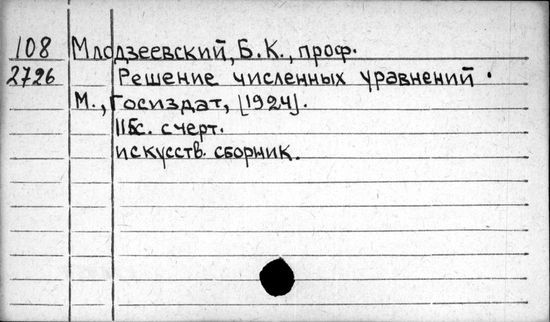 108 Млодзеевский, Б.К., проф.
2726 Решение численных уравнений.
М., Госиздат, [1924].
115с. с черт.
искусств. сборник.